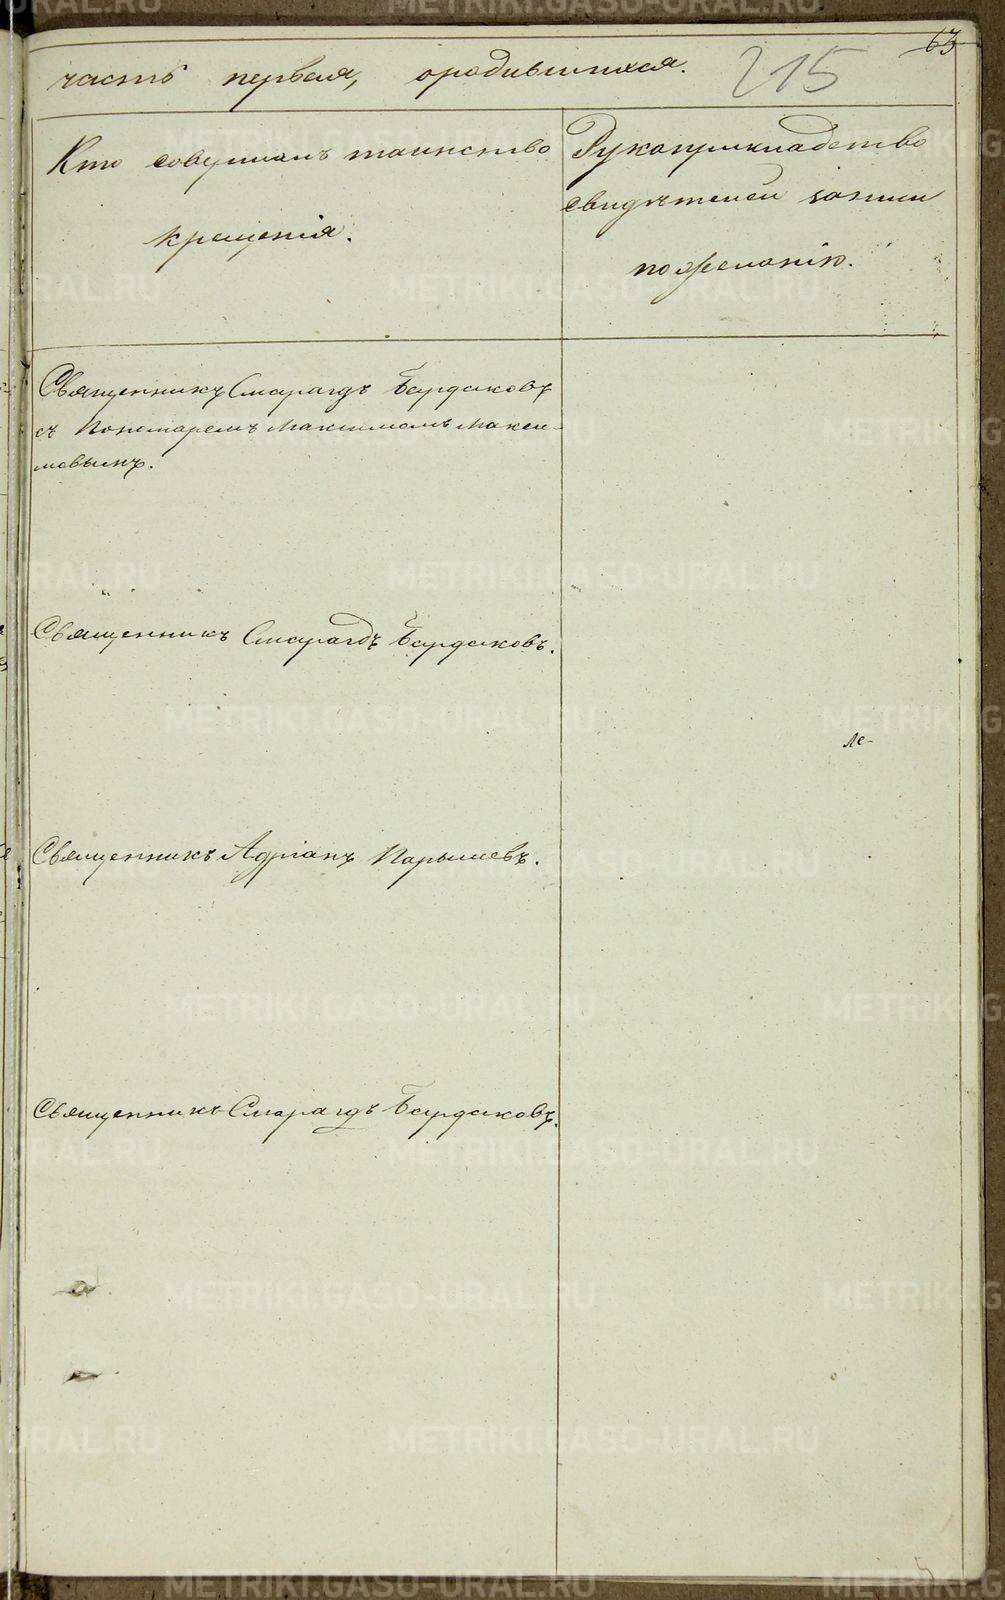 63
215
часть первая, ородившихся.
Кто совершалъ таинство
крещенія.
Рукоприкладство
свидѣтелей записи
по желанію.
Священникъ Смарагдъ Бардаковъ
съ Пономаремъ Максимомъ Макси-
мовымъ.
Священникъ Смарагдъ Бардаковъ.
Ле-
Священникъ Адріанъ Парышевъ.
Священникъ Смарагдъ Бардаковъ.
METRIKI.GASO-URAL.RU